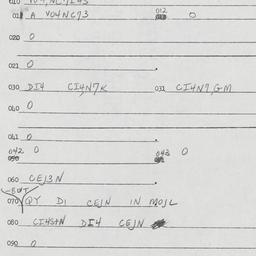 010
011 A VO4NC73 012 0
020 0
021 0 .
030 DI4 CI4N7K 031 CI4N7,GM
040 0
041 0 .
042 0 043 0
060 CEJ3N .
BUT
070 QY DI CEJN IN MOJL
080 CI4S4N DI4 CEJN
090 0